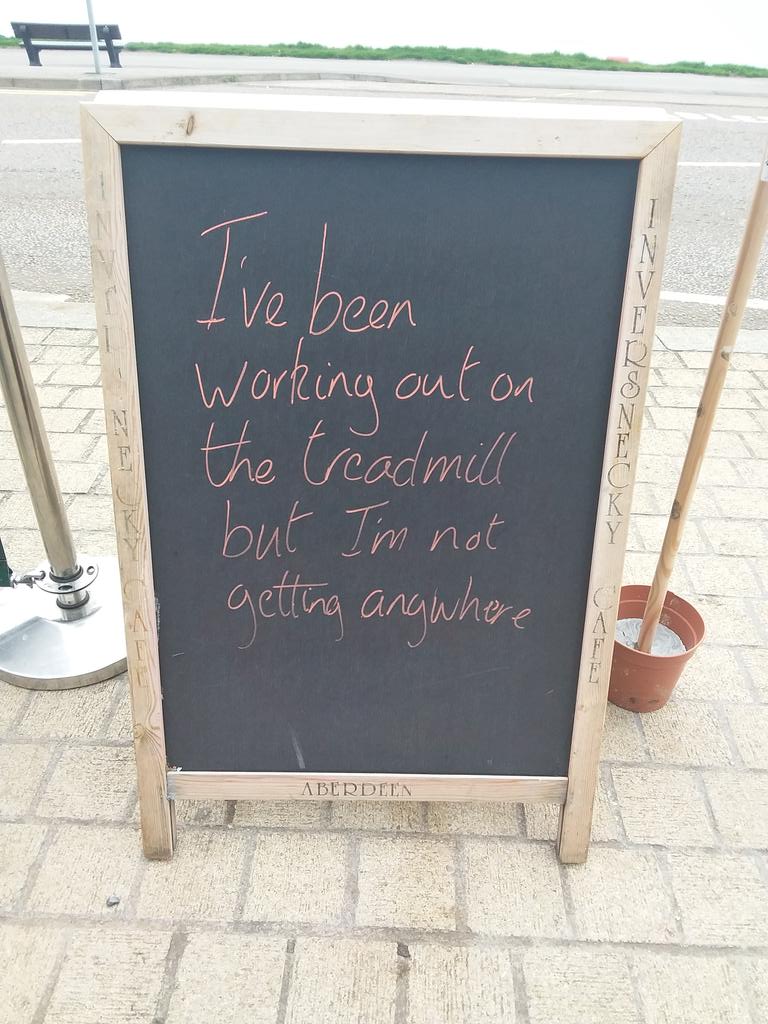 I've been
working out on
the treadmill
but I'm not
getting anywhere
INVERSNECKY CAFE
ABERDEEN